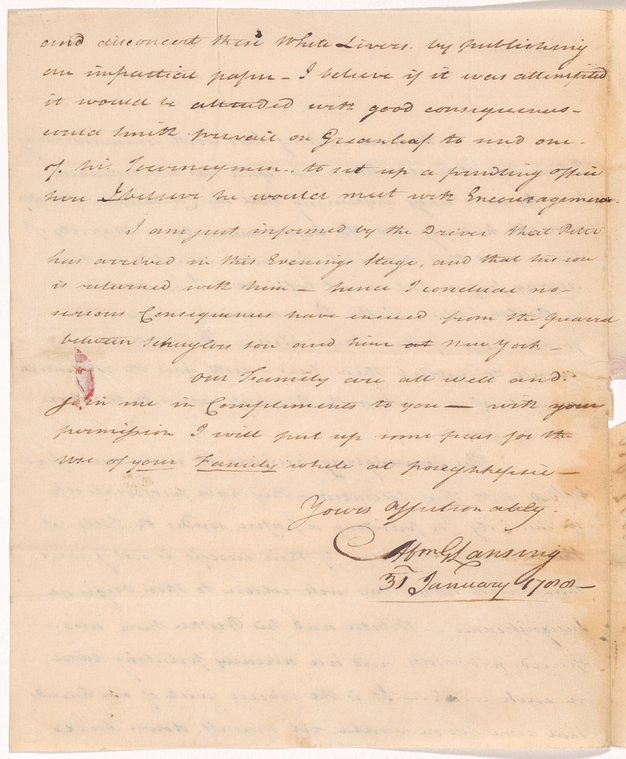 and disconcert these White Livers. by publishing
an impartial paper – I believe if it was attempted
it would be attended with good consequences –
could Smith prevail on Greenleaf. to send one.
of his Journeymen.. to set up a printing office
here I believe he would meet with Encouragement.
I am just informed by the Driver that Peter
has arrived in this Evenings Stage, and that his son
is returned with him – hence I conclude no-
serious Consequences have ensued from the Quarrel
between Schuylers son and him at New York –
our Family are all well and.
Join me in Compliments to you — with your
permission I will put up some peas for the
use of your Family while at poughkepsie —
Yours affectionately.
Abm G Lansing
31 January 1788 –